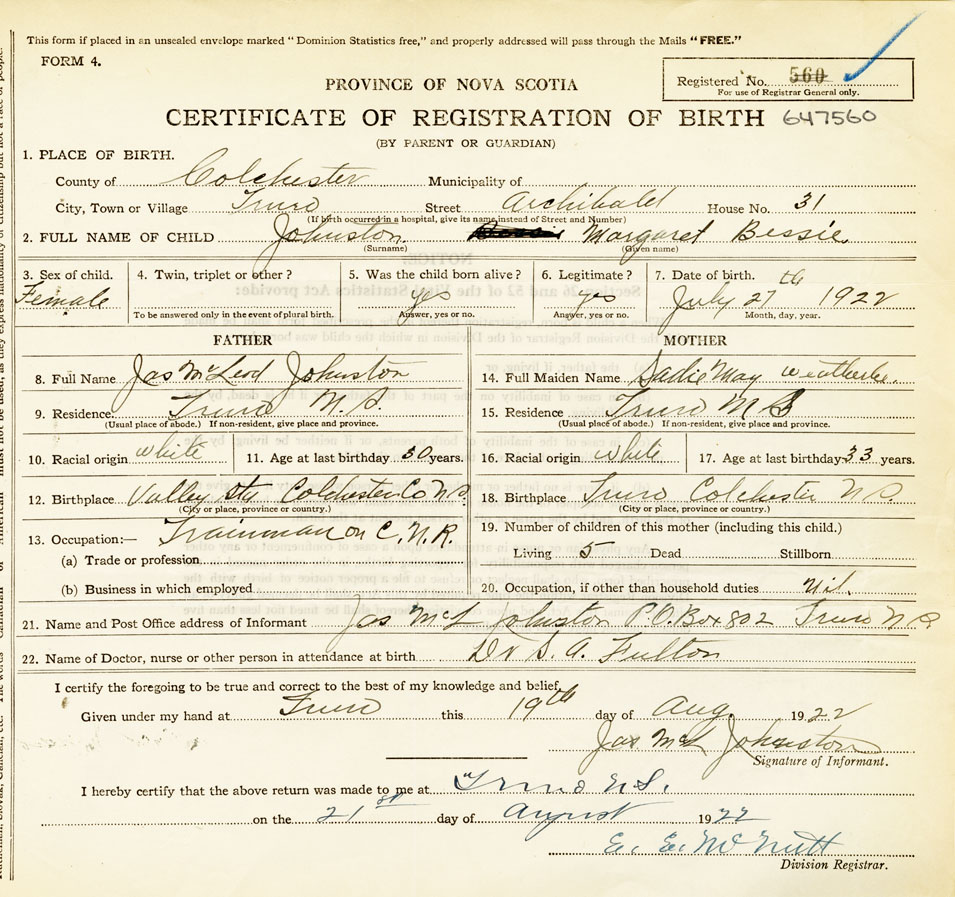 This form if placed in an unsealed envelope marked "Dominion Statistics free," and properly addressed will pass through the Mails "FREE."
FORM 4.
Registered No. 560
For use of Registrar General only.
PROVINCE OF NOVA SCOTIA
CERTIFICATE OF REGISTRATION OF BIRTH 647560
(BY PARENT OR GUARDIAN)
1. PLACE OF BIRTH.
County of Colchester Municipality of
City, Town or Village Truro Street Archibald House No. 31
(If birth occurred in a hospital, give its name instead of Street and Number)
2. FULL NAME OF CHILD Johnston Margaret Bessie
(Surname) (Given name)
3. Sex of child. 4. Twin, triplet or other? 5. Was the child born alive? 6. Legitimate? 7. Date of birth.
Female yes yes July 27th 1922
To be answered only in the event of plural birth. Answer, yes or no. Answer, yes or no. Month, day, year.
FATHER MOTHER
8. Full Name Jas McLeod Johnston 14. Full Maiden Name Sadie May Weatherbe
9. Residence Truro N.S. 15. Residence Truro N S
(Usual place of abode.) If non-resident, give place and province. (Usual place of abode.) If non-resident, give place and province.
10. Racial origin white 11. Age at last birthday 30 years. 16. Racial origin white 17. Age at last birthday 33 years.
12. Birthplace Valley Sta Colchester Co N.S. 18. Birthplace Truro Colchester N S
(City or place, province or country.) (City or place, province or country.)
13. Occupation:— Trainman on C.N.R. 19. Number of children of this mother (including this child.)
(a) Trade or profession Living 5 Dead Stillborn
(b) Business in which employed 20. Occupation, if other than household duties Nil.
21. Name and Post Office address of Informant Jas McL Johnston P.O. Box 802 Truro N S
22. Name of Doctor, nurse or other person in attendance at birth Dr S. A. Fulton
I certify the foregoing to be true and correct to the best of my knowledge and belief.
Given under my hand at Truro this 19th day of Aug. 1922
Jas McL Johnston
Signature of Informant.
I hereby certify that the above return was made to me at Truro N.S.
on the 21st day of August 1922
E. E. McNutt
Division Registrar.